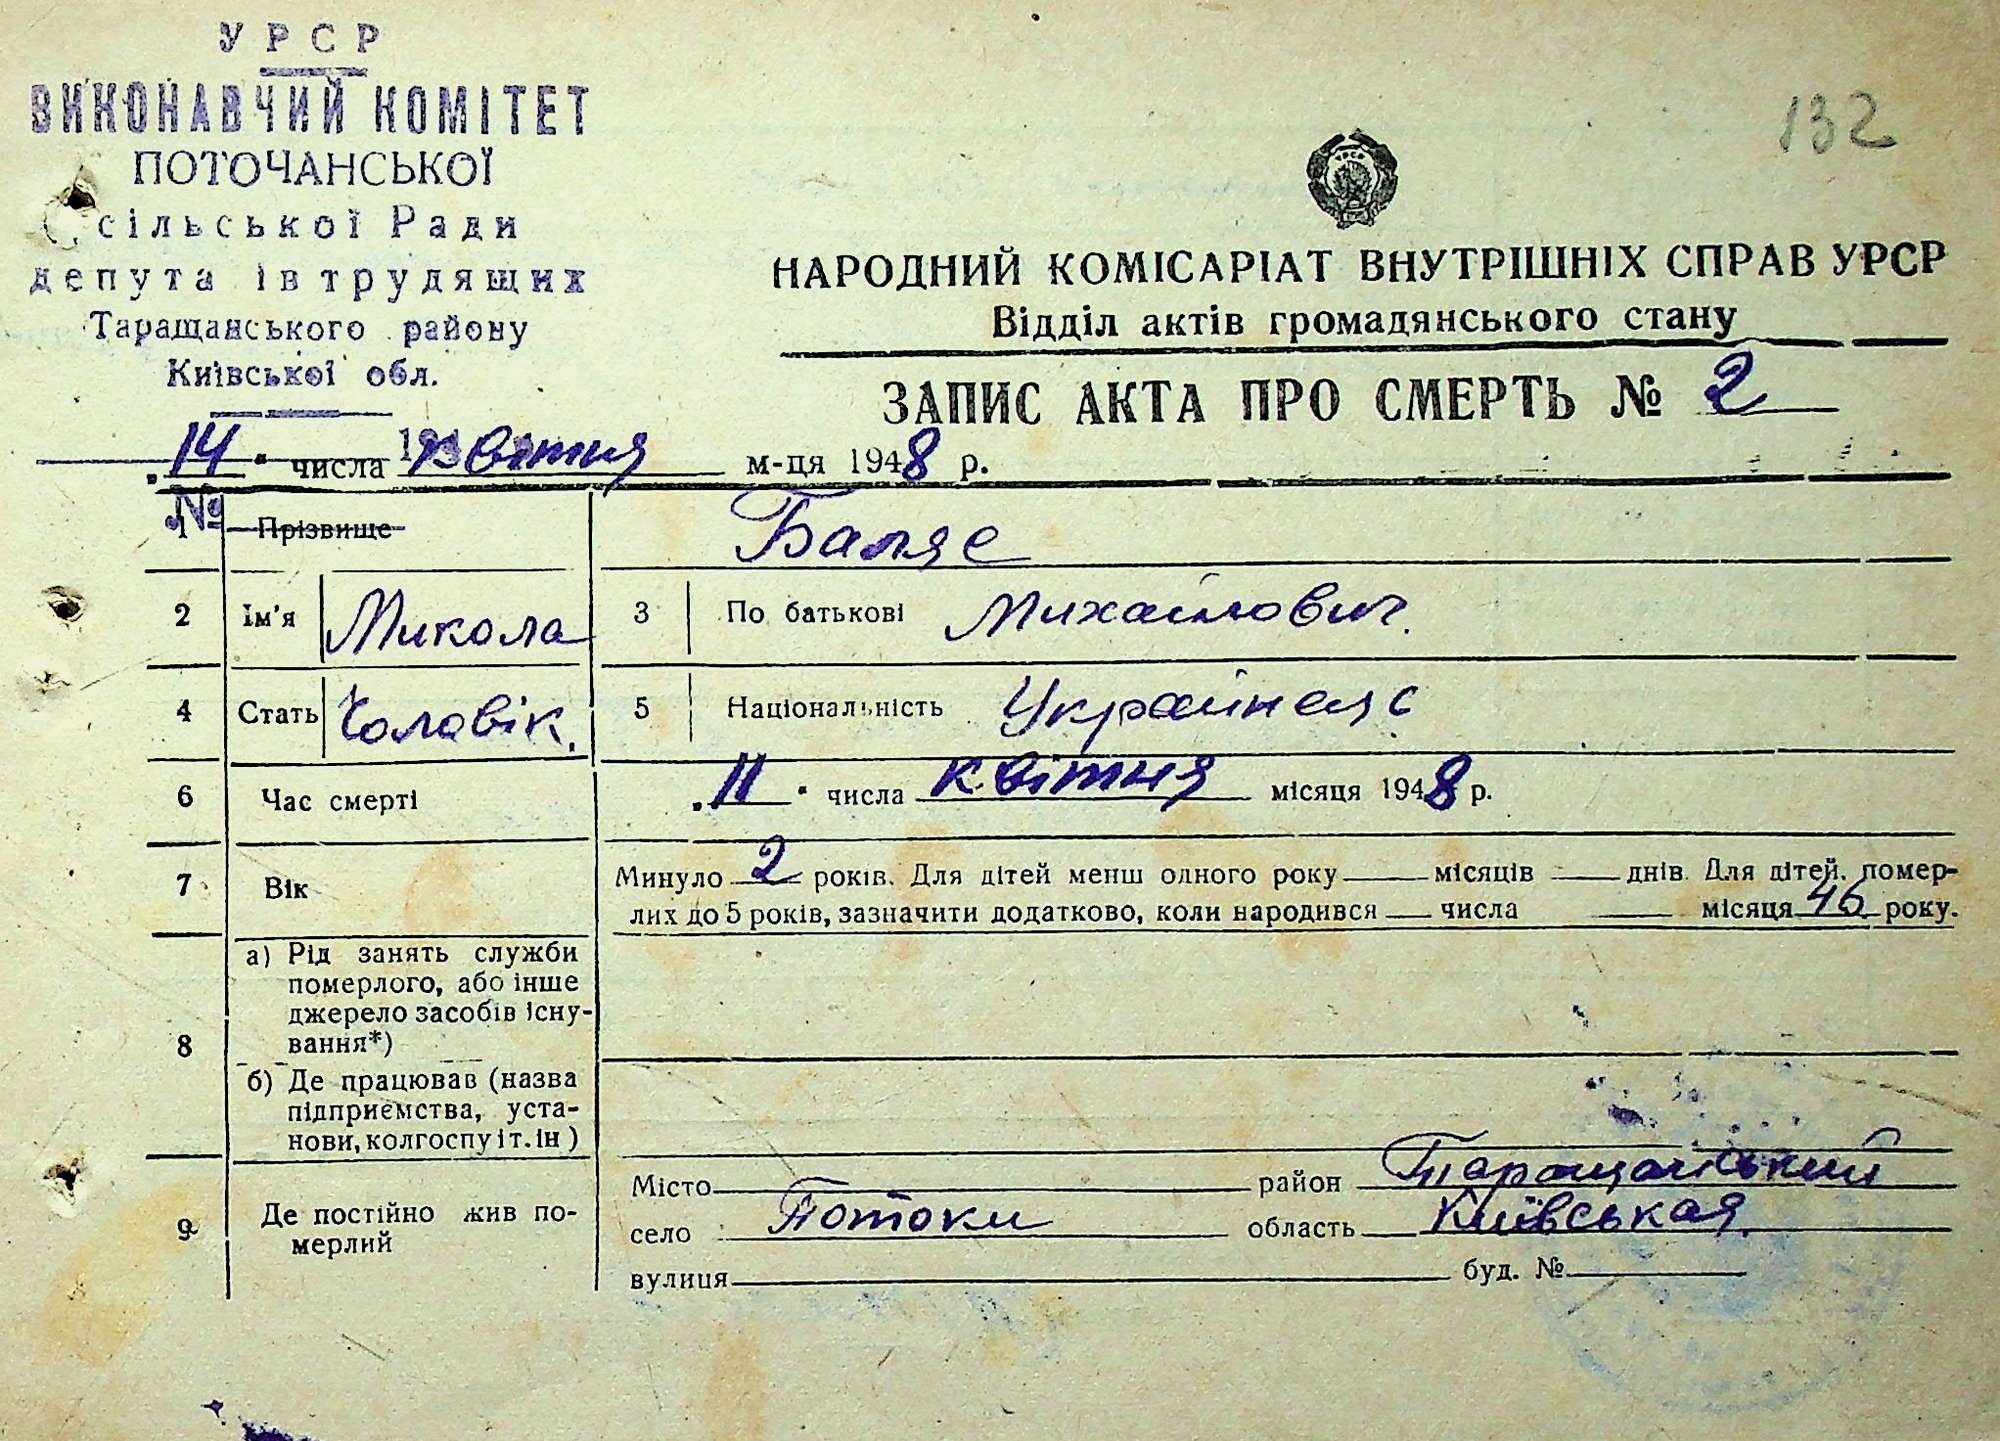 УРСР
ВИКОНАВЧИЙ КОМІТЕТ
ПОТОЧАНСЬКОЇ
сільської Ради
депутатів трудящих
Таращанського району
Київської обл.
132
НАРОДНИЙ КОМІСАРІАТ ВНУТРІШНІХ СПРАВ УРСР
Відділ актів громадянського стану
ЗАПИС АКТА ПРО СМЕРТЬ № 2
„14“ числа квітня м-ця 1948 р.
№
1 Прізвище Баляс
2 Ім'я Микола 3 По батькові Михайлович.
4 Стать Чоловік. 5 Національність
6 Час смерті „11“ числа квітня місяця 1948 р.
7 Вік Минуло 2 років. Для дітей менш одного року місяців днів. Для дітей, помер-
лих до 5 років, зазначити додатково, коли народився числа місяця 46 року.
8 а) Рід занять служби
померлого, або інше
джерело засобів існу-
вання*)
б) Де працював (назва
підприємства, уста-
нови, колгоспу і т. ін)
9 Де постійно жив по-
мерлий
Місто район Таращанський
село Потоки область Київськая.
вулиця буд. №